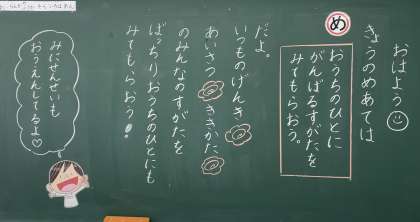 おはよう
きょうのめあては
め
おうちのひとに
がんばるすがたを
みてもらおう。
だよ。
いつものげんき
あいさつ ききかた
のみんなのすがたを
ばっちりおうちのひとにも
みてもらおう!
みにせんせいも
おうえんしてるよ♡